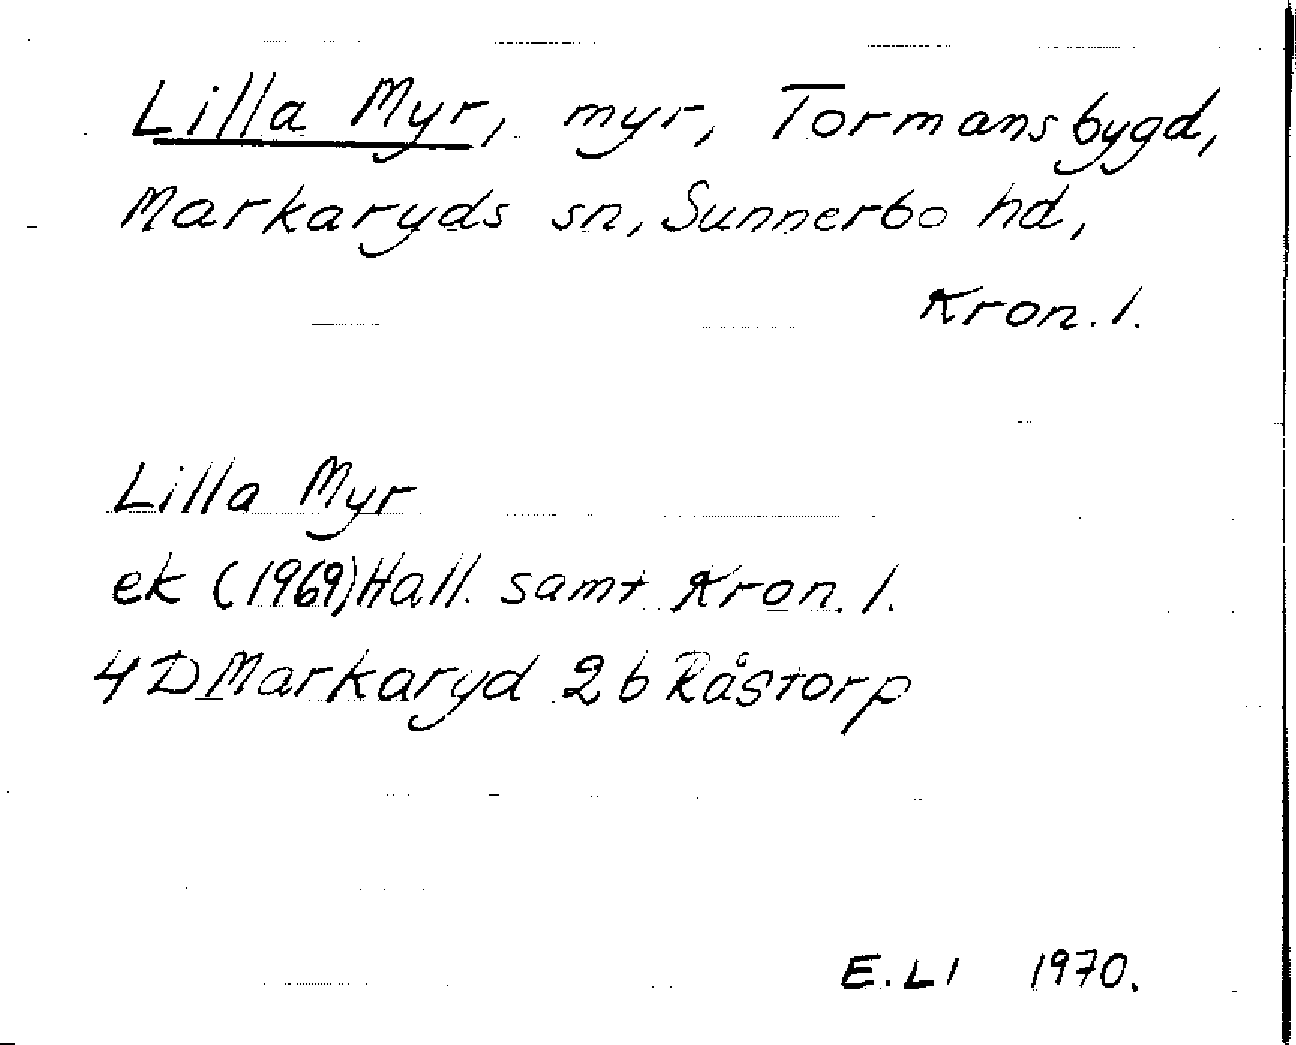 Lilla Myr, myr, Tormansbygd,
Markaryds sn, Sunnerbo hd,
Kron. l.
Lilla Myr
ek (1969) Hall. samt Kron. l.
4D Markaryd 2b Råstorp
E. LI 1970.